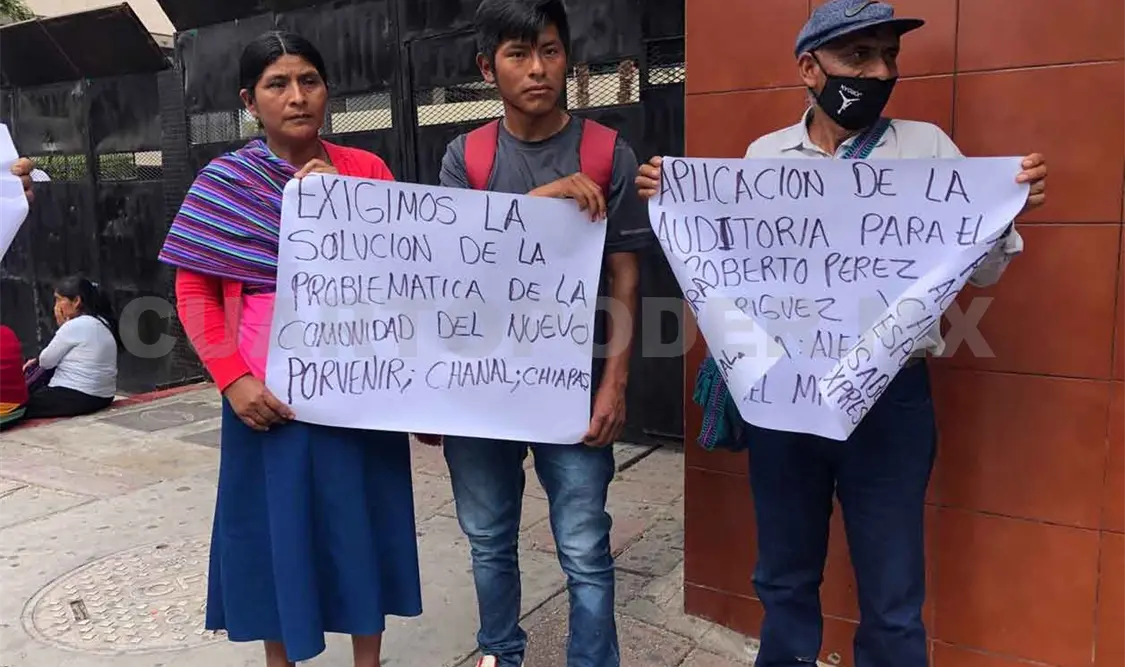 EXIGIMOS LA
SOLUCION DE LA
PROBLEMATICA DE LA
COMUNIDAD DEL NUEVO
PORVENIR; CHANAL; CHIAPAS
APLICACION DE LA
AUDITORIA PARA EL
ROBERTO PEREZ
EL
CUARTOPODER.MX